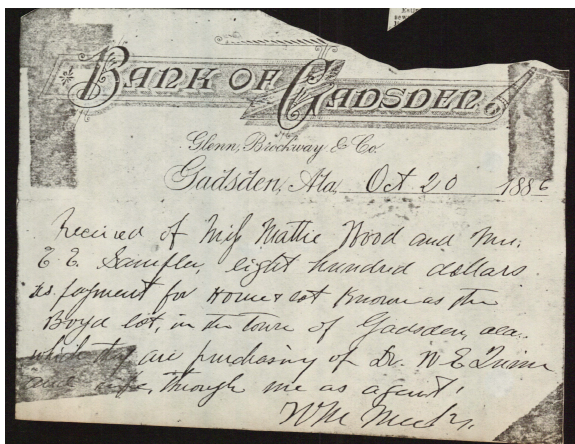 BANK OF GADSDEN.
Glenn, Brockway & Co.
Gadsden, Ala. Oct 20 1886
Recieved of Miss Mattie Wood and Mrs.
E. E. Sampler, eight hundred dollars
as payment for Home & lot Known as the
Boyd lot, in the town of Gadsden, ala.
which they are purchasing of Dr. W E Quinn
and wife, through me as agent.
Wm